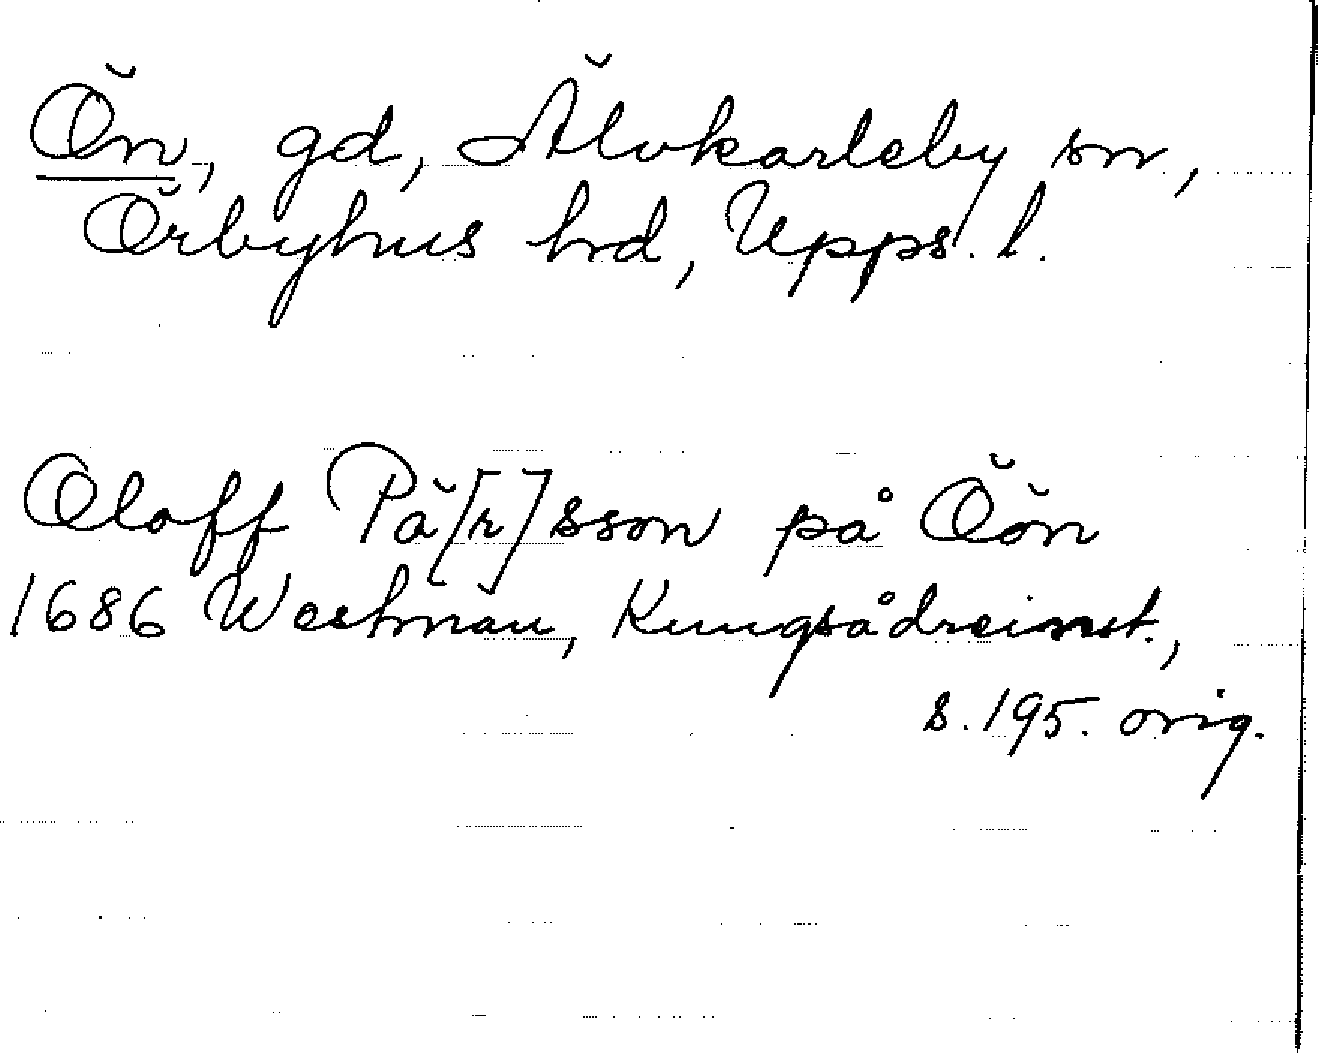 Ön, gd, Älvkarleby sn,
Örbyhus hrd, Upps. l.
Oloff Pä[r]sson på Öön
1686 Westman, Kungsådreinst.,
s. 195. orig.